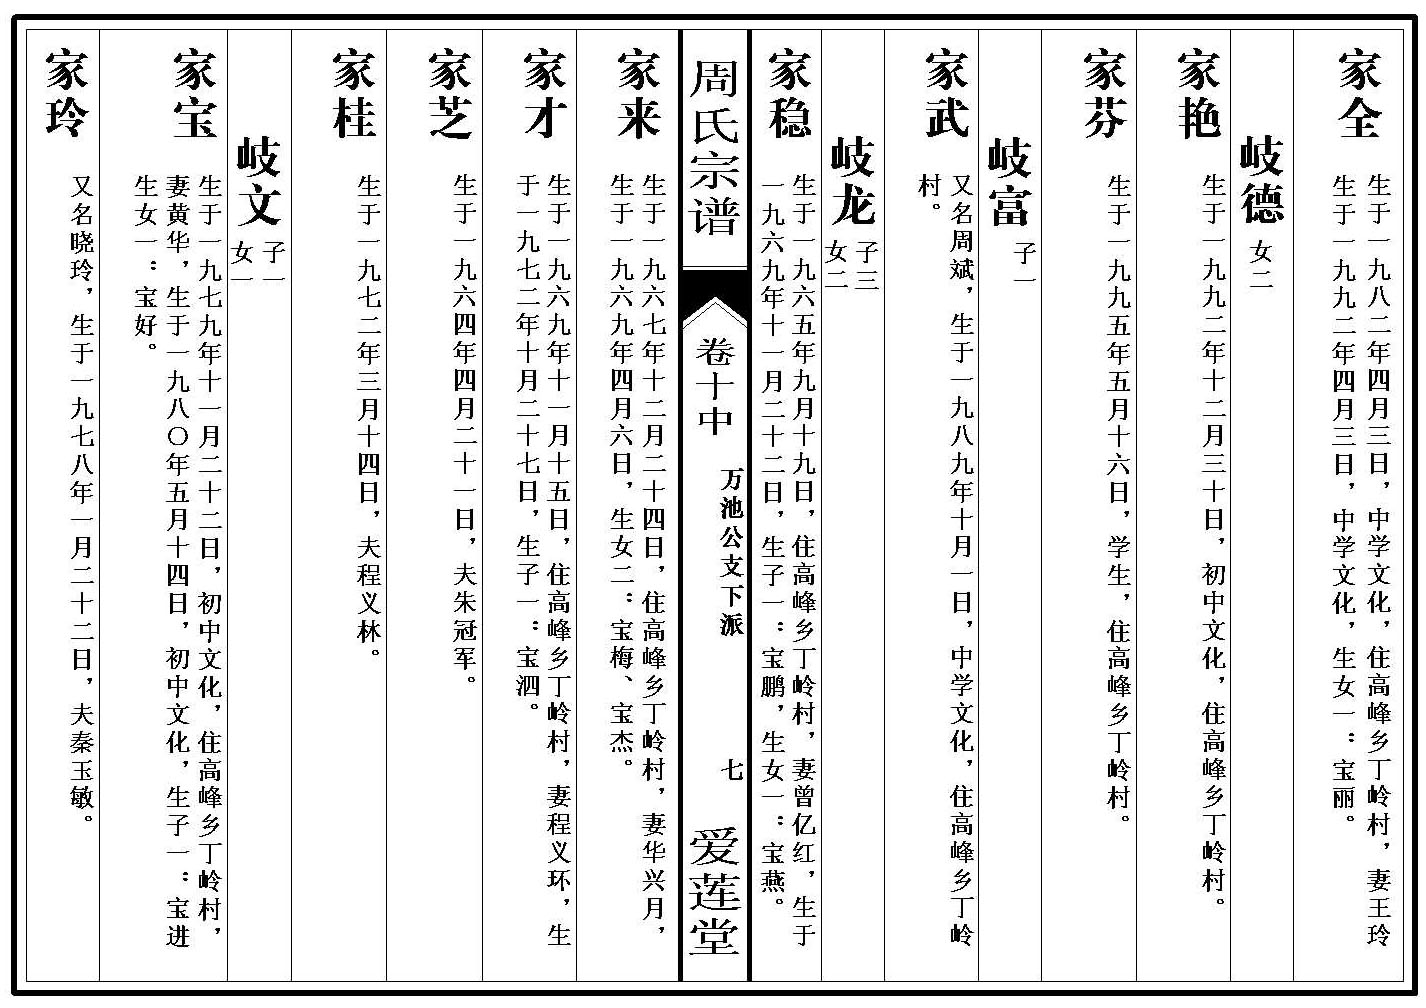 家全
生于一九八二年四月三日，中学文化，住高峰乡丁岭村，妻王玲
生于一九九二年四月三日，中学文化，生女一：宝丽。
岐德
女二
家艳
生于一九九二年十二月三十日，初中文化，住高峰乡丁岭村。
家芬
生于一九九五年五月十六日，学生，住高峰乡丁岭村。
岐富
子一
家武
又名周斌，生于一九八九年十月一日，中学文化，住高峰乡丁岭
村。
岐龙
子三
女二
家稳
生于一九六五年九月十九日，住高峰乡丁岭村，妻曾亿红，生于
一九六九年十一月二十二日，生子一：宝鹏，生女一：宝燕。
周氏宗谱
卷十中
万池公支下派
七
爱莲堂
家来
生于一九六七年十二月二十四日，住高峰乡丁岭村，妻华兴月，
生于一九六九年四月六日，生女二：宝梅、宝杰。
家才
生于一九六九年十一月十五日，住高峰乡丁岭村，妻程义环，生
于一九七二年十月二十七日，生子一：宝泗。
家芝
生于一九六四年四月二十一日，夫朱冠军。
家桂
生于一九七二年三月十四日，夫程义林。
岐文
子一
女一
家宝
生于一九七九年十一月二十二日，初中文化，住高峰乡丁岭村，
妻黄华，生于一九八〇年五月十四日，初中文化，生子一：宝进
生女一：宝好。
家玲
又名晓玲，生于一九七八年一月二十二日，夫秦玉敏。